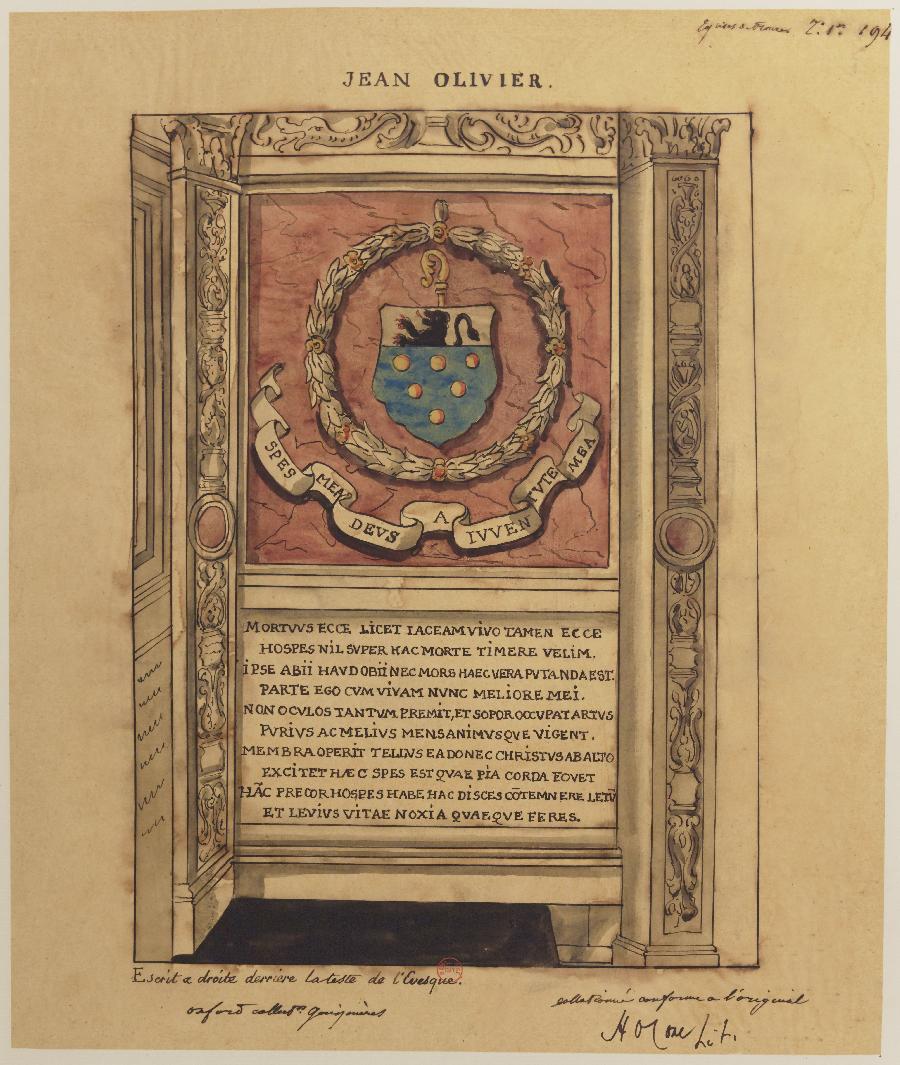 Tº 1er 194
JEAN OLIVIER.
SPES MEA DEVS A IVVENTVTE MEA
MORTVVS ECCE LICET IACEAM VIVO TAMEN ECCE
HOSPES NIL SVPER HAC MORTE TIMERE VELIM.
IPSE ABII HAVD OBII NEC MORS HAEC VERA PVTANDA EST.
PARTE EGO CVM VIVAM NVNC MELIORE MEI.
NON OCVLOS TANTVM PREMIT, ET SOPOR OCCVPAT ARTVS
PVRIVS AC MELIVS MENS ANIMVSQVE VIGENT.
MEMBRA OPERIT TELLVS EA DONEC CHRISTVS AB ALTO
EXCITET HÆC SPES EST QVAE PIA CORDA FOVET
HÃC PRECOR HOSPES HABE HAC DISCES CÕTEMNERE LETŨ
ET LEVIVS VITAE NOXIA QVAEQVE FERES.
Escrit a droite derriere la teste de l'Evesque.
oxford collect.on gaignières
collationné conforme a l'original